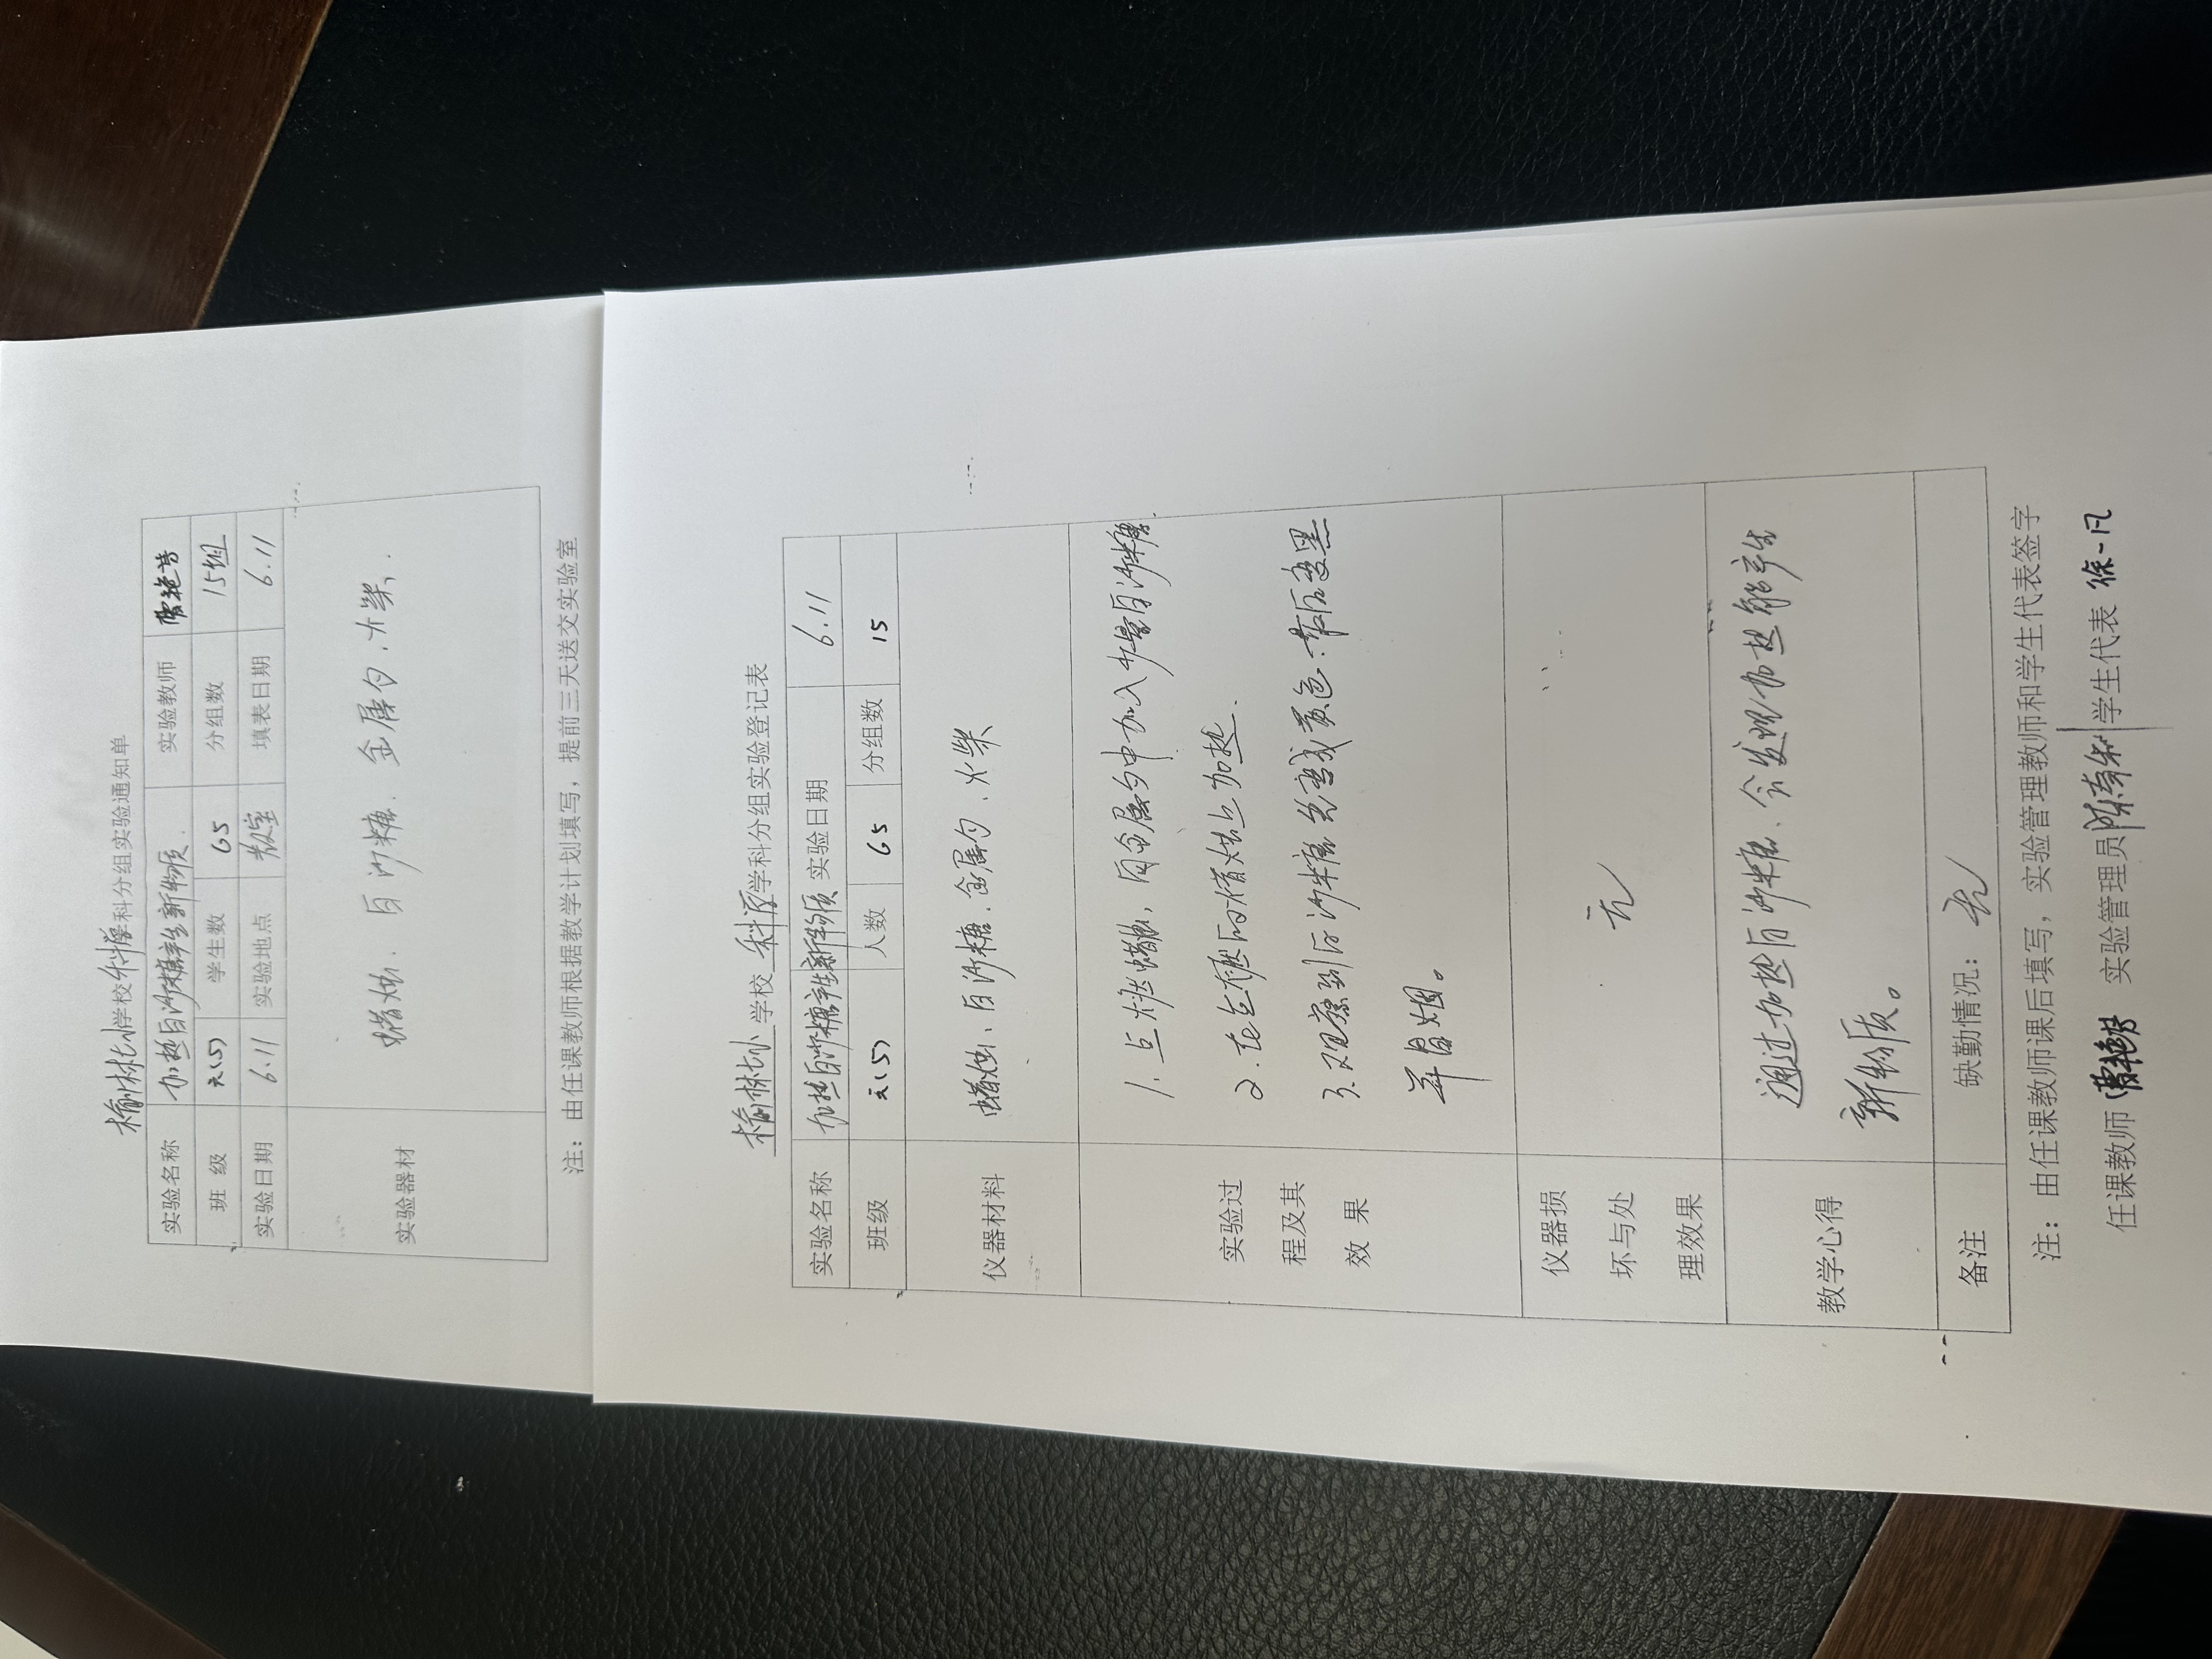 榆林小学校科学学科分组实验通知单
实验名称 加热白沙糖产生新物质. 实验教师
班 级 六(5) 学生数 65 分组数 15组
实验日期 6.11 实验地点 教室 填表日期 6.11
实验器材 蜡烛、白沙糖、金属勺、火柴、
注：由任课教师根据教学计划填写，提前三天送交实验室
榆林小学校 科学 学科分组实验登记表
实验名称 加热白沙糖产生新物质 实验日期 6.11
班级 六(5) 人数 65 分组数 15
仪器材料 蜡烛、白沙糖、金属勺、火柴
实验过
程及其
效 果
1. 点燃蜡烛，向金属勺中加入少量白沙糖.
2. 在点燃的蜡烛上加热.
3. 观察到白沙糖先变成黄色.最后变黑
并冒烟。
仪器损
坏与处
理效果
无
教学心得
通过加热白沙糖、会发现加热能产生
新物质。
备注 缺勤情况：无
注：由任课教师课后填写，实验管理教师和学生代表签字
任课教师 实验管理员 学生代表 徐一凡